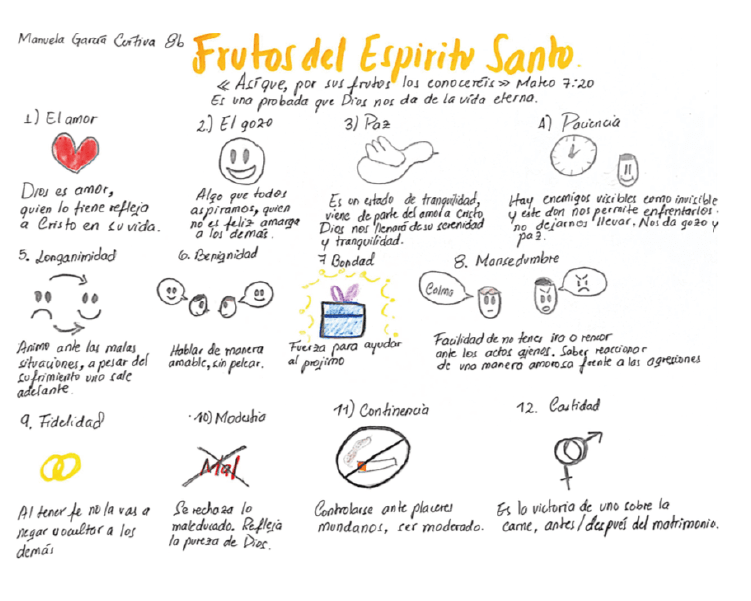 Manuela García Cortiva 8b
Frutos del Espiritu Santo.
« Así que, por sus frutos los conoceréis » Mateo 7:20
Es una probada que Dios nos da de la vida eterna.
1) El amor
Dios es amor,
quien lo tiene refleja
a Cristo en su vida.
2) El gozo
Algo que todos
aspiramos, quien
no es feliz amarga
a los demás.
3) Paz
Es un estado de tranquilidad,
viene de parte del amor a Cristo
Dios nos llenará de su serenidad
y tranquilidad.
4) Paciencia
Hay enemigos visibles como invisible
y este don nos permite enfrentarlos.
no dejarnos llevar. Nos da gozo y
paz.
5. Longanimidad
Animo ante las malas
situaciones, a pesar del
sufrimiento uno sale
adelante.
6. Benignidad
Hablar de manera
amable, sin pelear.
7 Bondad
Fuerza para ayudar
al projimo
8. Mansedumbre
Calma
Facilidad de no tener ira o rencor
ante los actos ajenos. Saber reaccionar
de una manera amorosa frente a las agresiones
9. Fidelidad
Al tener fe no la vas a
negar u ocultar a los
demás
10) Modestia
Mal
Se rechaza lo
maleducado. Refleja
la pureza de Dios.
11) Continencia
Controlarse ante placeres
mundanos, ser moderado.
12. Castidad
Es la victoria de uno sobre la
carne, antes/después del matrimonio.